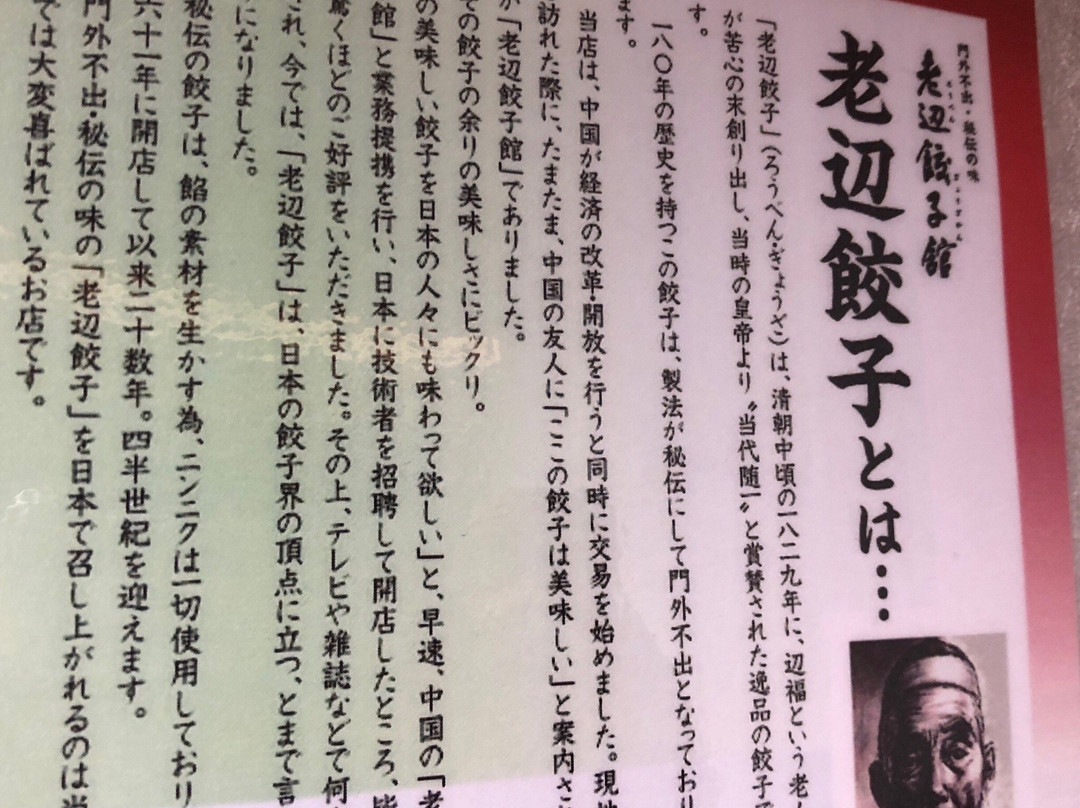 門外不出・秘伝の味
老辺餃子館
ろうべん ぎょうざかん
老辺餃子とは…
「老辺餃子」（ろうべん・ぎょうざ）は、清朝中頃の一八二九年に、辺福という老人
が苦心の末創り出し、当時の皇帝より〝当代随一〟と賞賛された逸品の餃子で
す。
一八〇年の歴史を持つこの餃子は、製法が秘伝にして門外不出となっており
ます。
当店は、中国が経済の改革・開放を行うと同時に交易を始めました。現地
訪れた際に、たまたま、中国の友人に「ここの餃子は美味しい」と案内さ
が「老辺餃子館」でありました。
ての餃子の余りの美味しさにビックリ。
の美味しい餃子を日本の人々にも味わって欲しい」と、早速、中国の「老
館」と業務提携を行い、日本に技術者を招聘して開店したところ、皆
驚くほどのご好評をいただきました。その上、テレビや雑誌などで何
され、今では、「老辺餃子」は、日本の餃子界の頂点に立つ、とまで言
になりました。
秘伝の餃子は、餡の素材を生かす為、ニンニクは一切使用しており
六十一年に開店して以来二十数年。四半世紀を迎えます。
門外不出・秘伝の味の「老辺餃子」を日本で召し上がれるのは当
では大変喜ばれているお店です。